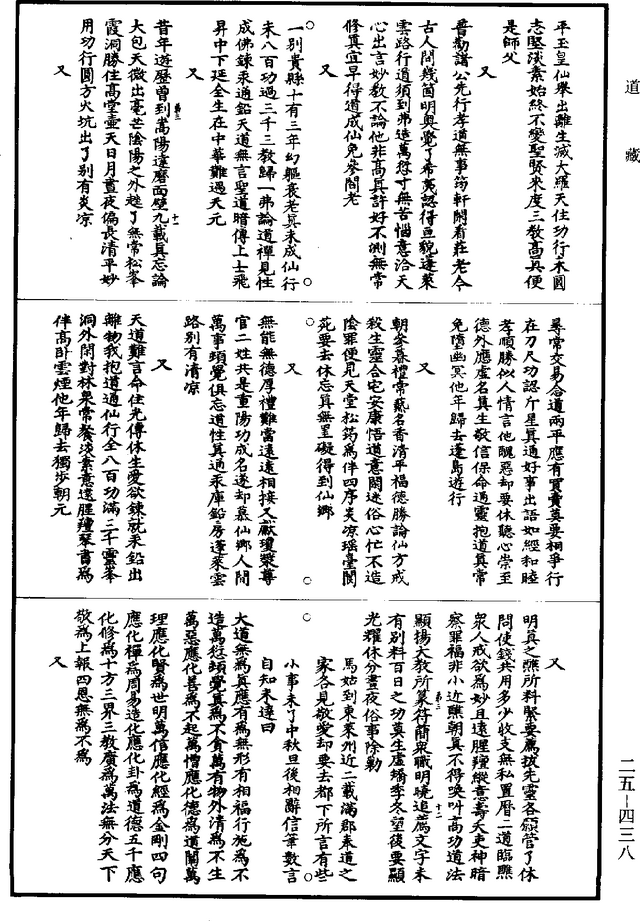 道藏
平玉皇仙舉出離生滅大羅天住功行未圓
志堅淡素始終不變聖賢來度三教高真便
是師父
又
普勸諸公先行孝道無事筠軒閑看莊老今
古人間幾箇明奥覺了希夷認得亘貌蓬萊
雲路行道須到弗造萬愆寸無苦惱意洽天
心出言妙教不論他非高真許好不測無常
修真宜早得道成仙免參閻老
又
一別貴縣十有三年幻軀衰老真未成仙行
未八百功過三千三教歸一弗論道禪見性
成佛鍊汞過鉛天道無言聖道暗傳上士飛
昇中下延全生在中華難遇天元
又
昔年遊歷曾到嵩陽達磨面壁九載真忘論
大包天微出毫芒陰陽之外趓了無常松峯
霞洞勝住高堂壺天日月晝夜偏長清平妙
用功行圓方火坑出了別有炎凉
又
尋常交易合道兩平應有買賣莫要相爭行
在刀尺功認斤星真通好事出語如經和睦
孝順勝似人情言他醜惡却要休聽心崇至
德外應虛名真生敬信保命通靈抱道真常
免墮幽冥他年歸去蓬島遊行
又
朝參暮禮常爇名香清平福德勝論仙方戒
殺生靈合宅安康悟道意閑迷俗心忙不造
陰罪便見天堂松筠為伴四序炎凉瑶臺閬
苑要去休忘真無罣礙得到仙鄉
又
無能無德厚禮難當遠遠相接又獻瓊漿尊
官二姓共是重陽功成名遂却慕仙鄉人間
萬事頭覺俱忘道性真通汞庫鉛房蓬萊雲
路別有清凉
又
天道難言命住光傳休生愛欲鍊就汞鉛出
離物我抱道通仙行全八百功滿三千雲峯
洞外閑對林泉常餐淡素意遠腥羶琴書為
伴高卧雲煙他年歸去獨步朝元
又
明真之醮所料緊要薦拔先靈各願管了休
問使錢共用多少收支無私置曆二道臨醮
衆人戒欲為妙且遠腥羶縱意壽夭吏神暗
察罪福非小近醮朝真不得喚叫高功道法
顯揚大教所篆符簡衆職明曉追薦文字未
有別料百日之功莫生虛矯季冬望後要顯
光耀休分晝夜俗事除勦
馬姑到東萊州近二載滿郡奉道之
家各見敬愛却要去都下所言有些
小事未了中秋旦後相辭信筆數言
自知未達曰
大道無為真應有為無形有相福行施為不
造萬愆頭覺真為不貪萬有物外清為不生
萬惡應化善為不起萬憎應化德為道闡萬
理應化賢為世明萬信應化經為金剛四句
應化禪為周易造化應化卦為道德五千應
化修為十方三界三教廣為萬法無分天下
敬為上報四恩無為不為
又
二五－四三八